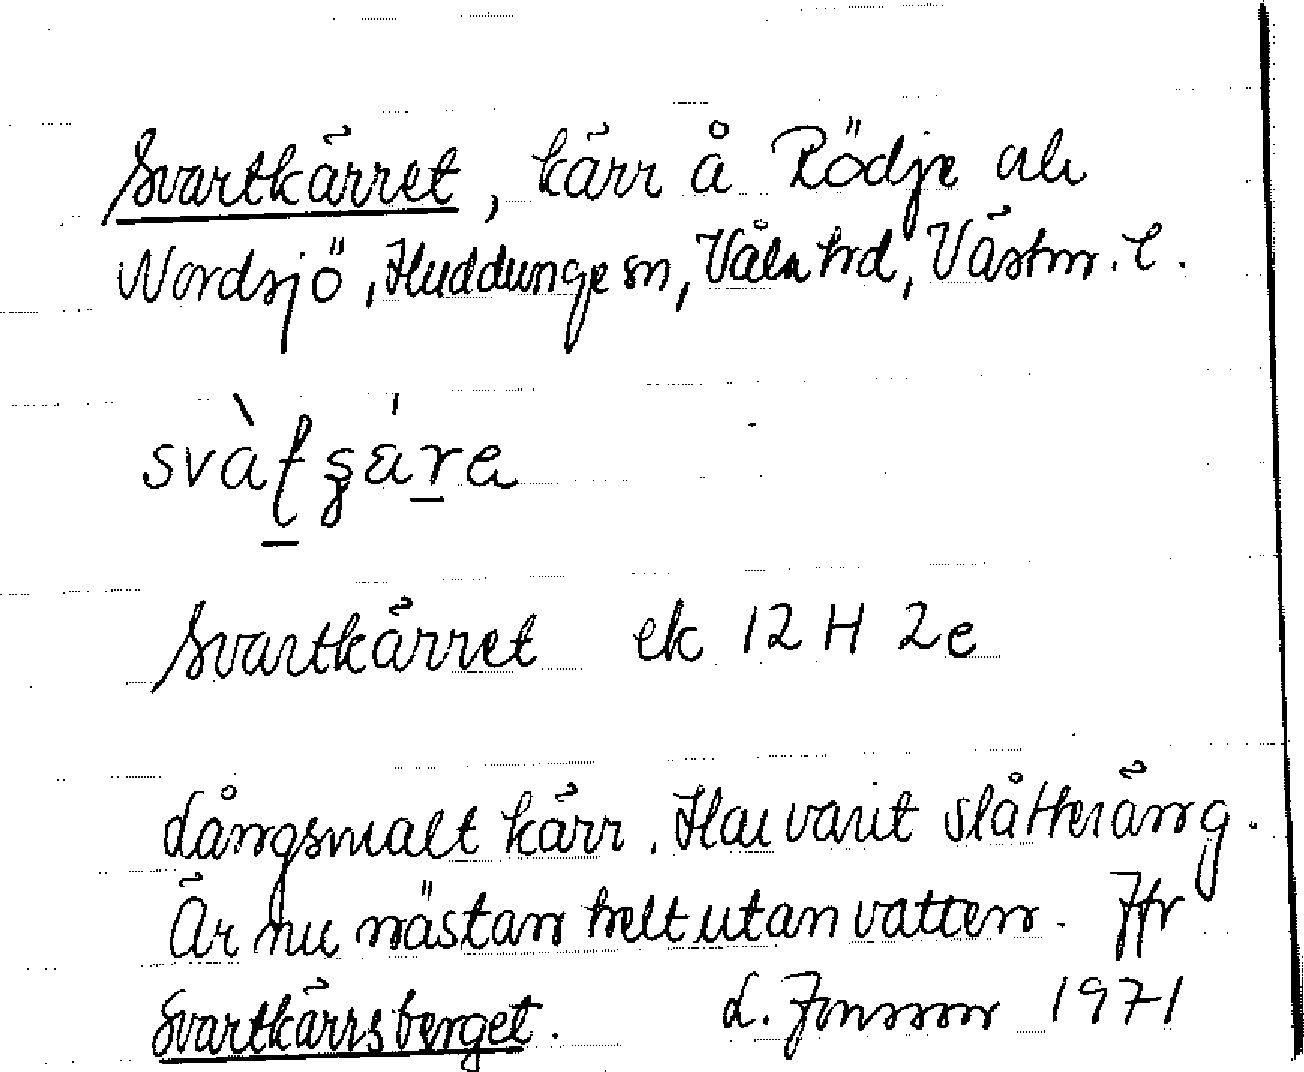 Svartkärret, kärr å Rödje och
Nordsjö, Huddunge sn, Våla hd, Västm. l.
Svartkärret ek 12 H 2e
Långsmalt kärr. Har varit slåtteräng.
Är nu nästan helt utan vatten. Jfr
Svartkärrsberget. L. Jonsson 1971